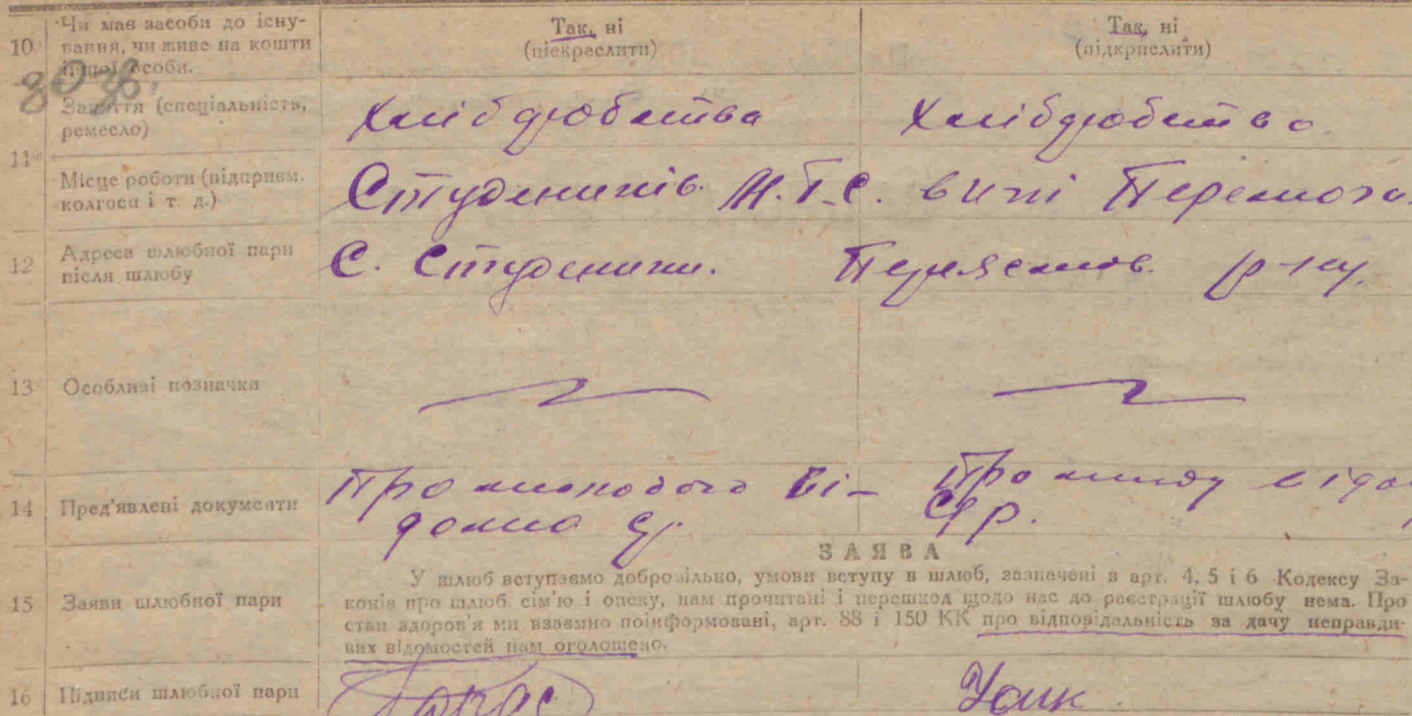 10 Чи має засоби до існу-
вання, чи живе на кошти
іншої особи.
Так, ні
(піскреслити)
Так, ні
(підкрислити)
11
Заняття (спеціальність,
ремесло)
Хлібдробства Хлібдробство
Місце роботи (підприєм.
колгосп і т. д.)
Студеників. М.Т.С. Перемога.
12 Адреса шлюбної пари
після шлюбу
С. Студеники. Переяслов. р-ну.
13 Особливі позначки
14 Пред'явлені документи
Про
Про
ср.
ЗАЯВА
15 Заяви шлюбної пари
У шлюб вступаємо добровільно, умови вступу в шлюб, зазначені в арт. 4, 5 і 6 Кодексу За-
конів про шлюб сім'ю і опеку, нам прочитані і перешкод щодо нас до реєстрації шлюбу нема. Про
стан здоров'я ми взаємно поінформовані, арт. 88 і 150 КК про відповідальність за дачу неправди-
вих відомостей нам оголошено.
16 Підписи шлюбної пари